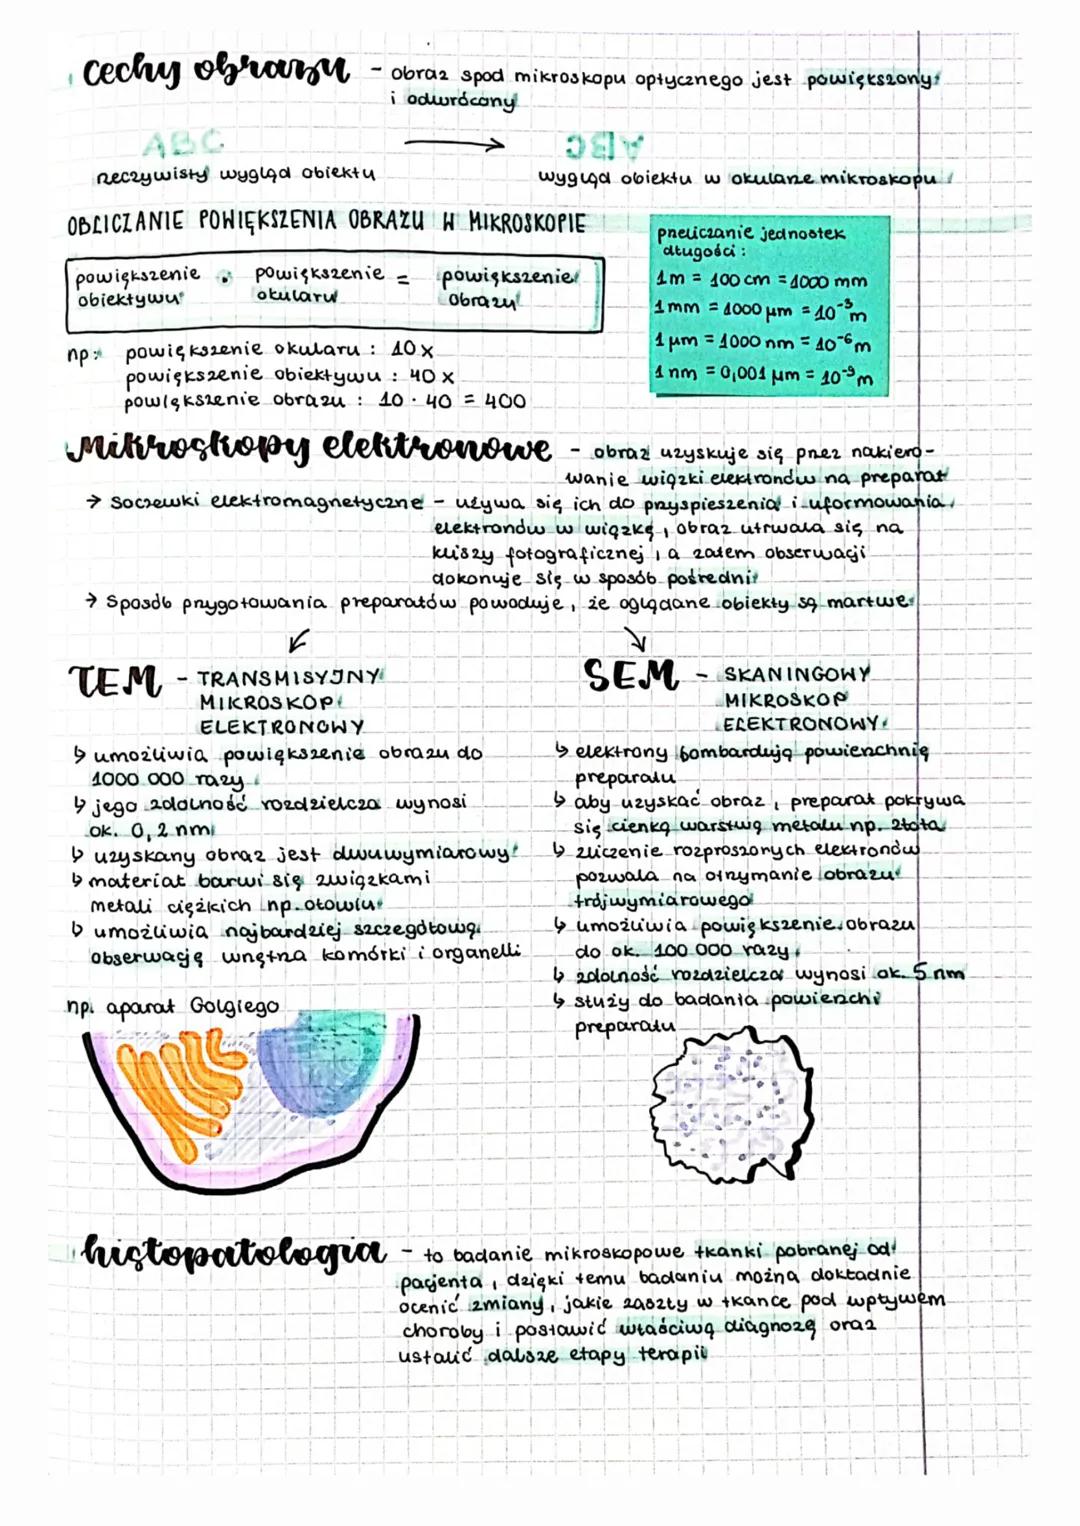 cechy obrazu - obraz spod mikroskopu optycznego jest powiększony
i odwrócony
ABC → ABC
rzeczywisty wygląd obiektu
wygląd obiektu w okularze mikroskopu
OBLICZANIE POWIĘKSZENIA OBRAZU W MIKROSKOPIE
powiększenie · powiększenie = powiększenie
obiektywu okularu obrazu
przeliczanie jednostek
długości:
1m = 100 cm = 1000 mm
1mm = 1000 µm = 10⁻³m
1 µm = 1000 nm = 10⁻⁶m
1 nm = 0,001 µm = 10⁻⁹m
np: powiększenie okularu : 10x
powiększenie obiektywu : 40x
powiększenie obrazu : 10 · 40 = 400
Mikroskopy elektronowe - obraz uzyskuje się przez nakiero-
wanie wiązki elektronów na preparat
→ soczewki elektromagnetyczne - używa się ich do przyspieszenia i uformowania
elektronów w wiązkę, obraz utrwala się na
kliszy fotograficznej, a zatem obserwacji
dokonuje się w sposób pośredni
→ Sposób przygotowania preparatów powoduje, że oglądane obiekty są martwe
TEM - TRANSMISYJNY
MIKROSKOP
ELEKTRONOWY
↳ umożliwia powiększenie obrazu do
1000 000 razy
↳ jego zdolność rozdzielcza wynosi
ok. 0,2 nm
↳ uzyskany obraz jest dwuwymiarowy
↳ materiał barwi się związkami
metali ciężkich np. ołowiu
↳ umożliwia najbardziej szczegółową
obserwację wnętrza komórki i organelli
np. aparat Golgiego
SEM - SKANINGOWY
MIKROSKOP
ELEKTRONOWY
↳ elektrony bombardują powierzchnię
preparatu
↳ aby uzyskać obraz, preparat pokrywa
się cienką warstwą metalu np. złota
↳ zliczenie rozproszonych elektronów
pozwala na otrzymanie obrazu
trójwymiarowego
↳ umożliwia powiększenie obrazu
do ok. 100 000 razy
↳ zdolność rozdzielcza wynosi ok. 5 nm
↳ służy do badania powierzchi
preparatu
histopatologia - to badanie mikroskopowe tkanki pobranej od
pacjenta, dzięki temu badaniu można dokładnie
ocenić zmiany, jakie zaszły w tkance pod wpływem
choroby i postawić właściwą diagnozę oraz
ustalić dalsze etapy terapii